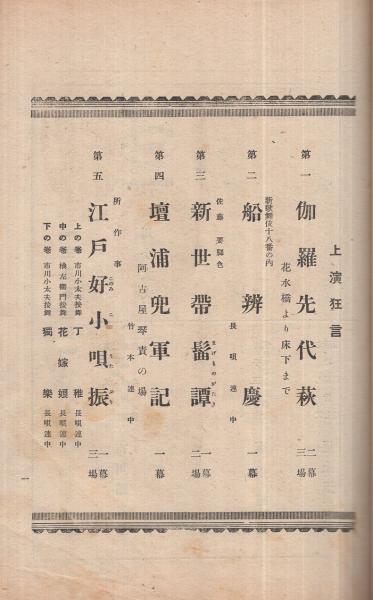 上演狂言
第一 伽羅先代萩 二幕三場
花水橋より床下まで
新歌舞伎十八番の内
第二 船辨慶 長唄連中 一幕
佐藤 要脚色
第三 新世帶髷譚 まげものがたり 一幕二場
第四 壇浦兜軍記 一幕
阿古屋琴責の場 竹本連中
第五 江戸好小唄振 一幕三場
所作事
上の卷 市川小太夫按舞 丁稚 長唄連中
中の卷 左衞門按舞 花嫁 長唄連中
下の卷 市川小太夫按舞 獨樂 長唄連中
一